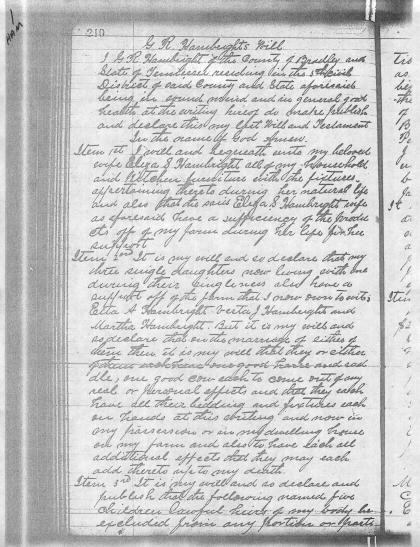 1
HAM
210
G. R. Hambright's Will
I G. R. Hambright of the County of Bradley and
State of Tennessee residing in the 5th Civil
District of said County and State aforesaid
being in sound mind and in general good
health at the writing hereof do make publish
and declare this my last Will and Testament
In the name of God Amen.
Item 1st I will and bequeath unto my beloved
wife Eliza S Hambright all of my Household
and Kitchen furniture with the fixtures
appertaining thereto during her natural life
and also that the said Eliza S. Hambright wife
as aforesaid have a sufficiency of the produ
cts off of my farm during her life for her
support
Item 2nd It is my will and so declare that my
three single daughters now living with me
during their singleness also have a
support off of the farm that I now own to wit,
Etta A Hambright Verta J Hambright and
Martha Hambright. But it is my will and
so declare that on the marriage of either of
them then it is my will that they or either
of them each have one good horse and sad
dle, one good cow each to come out of my
real or personal effects and that they each
have all their bedding and fixtures each
on hands at this writing and now in
my possession or in my dwelling house
on my farm and also to have each all
additional effects that they may each
add thereto up to my death.
Item 3rd It is my will and so declare and
publish that the following named five
children lawful heirs of my body be
excluded from any portion or parts